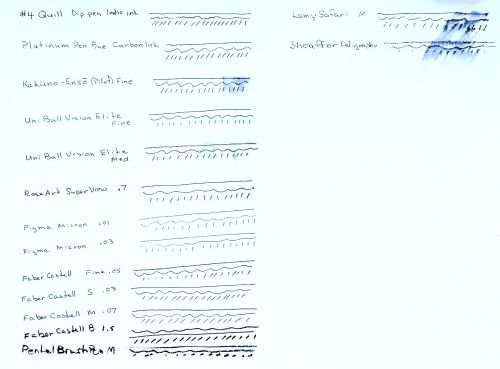 #4 Quill Dip pen India ink
Platinum Pen Fine Carbon Ink
Kakuno-Ensō (Pilot) Fine
Uni Ball Vision Elite
Fine
Uni Ball Vision Elite
Med
RoseArt SuperView .7
Pigma Micron .01
Pigma Micron .03
Faber Castell Fine .05
Faber Castell S .03
Faber Castell M .07
Faber Castell B 1.5
Pentel Brush Pen M
Lamy Safari M
Sheaffer